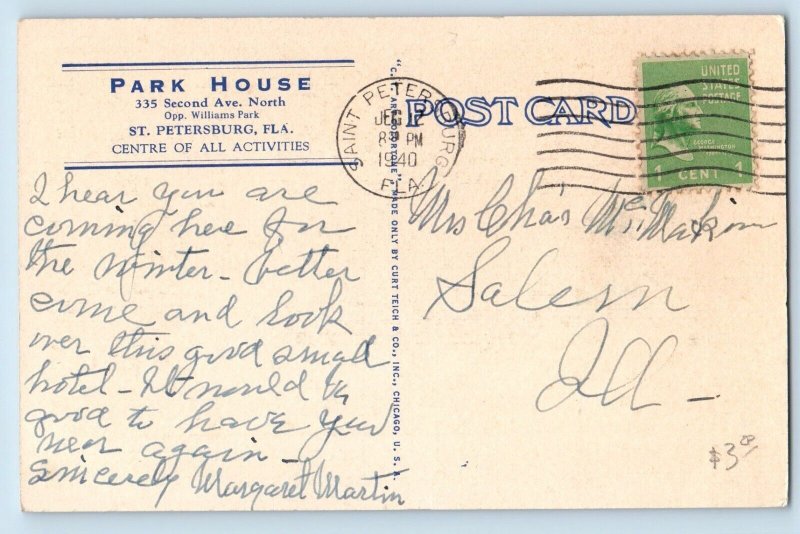 PARK HOUSE
335 Second Ave. North
Opp. Williams Park
ST. PETERSBURG, FLA.
CENTRE OF ALL ACTIVITIES
I hear you are
coming here for
the winter - better
come and look
over this good small
hotel - It would be
good to have you
near again -
Sincerely Margaret Martin
MADE ONLY BY CURT TEICH & CO., INC., CHICAGO, U. S. A.
SAINT PETERSBURG
PM
1940
FLA.
POST CARD
UNITED
STATES
POSTAGE
GEORGE
WASHINGTON
1 CENT 1
Mrs Chas
Salem
Ill -
$3.00